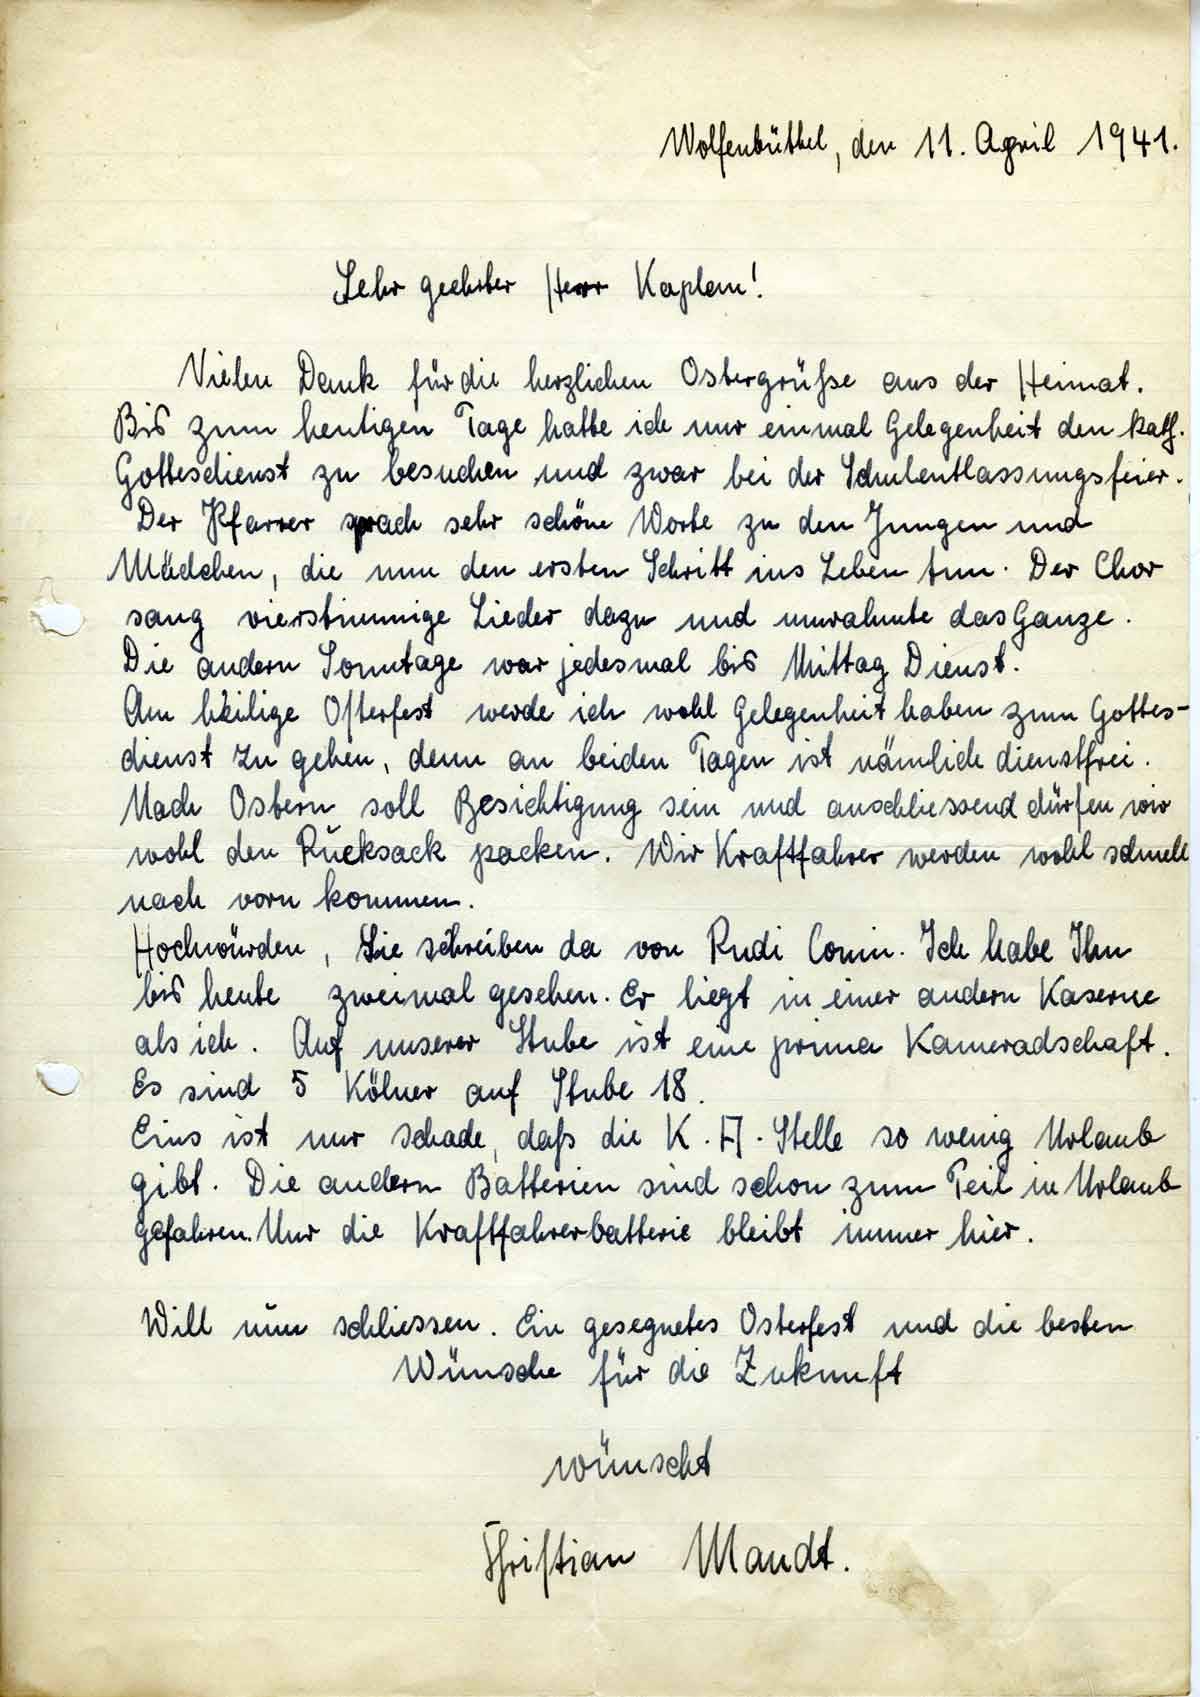 Wolfenbüttel, den 11. April 1941.
Sehr geehrter Herr Kaplan!
Vielen Dank für die herzlichen Ostergrüße aus der Heimat.
Bis zum heutigen Tage hatte ich nur einmal Gelegenheit den kath.
Gottesdienst zu besuchen und zwar bei der Schulentlassungsfeier.
Der Pfarrer sprach sehr schöne Worte zu den Jungen und
Mädchen, die nun den ersten Schritt ins Leben tun. Der Chor
sang vierstimmige Lieder dazu und umrahmte das Ganze.
Die andern Sonntage war jedesmal bis Mittag Dienst.
Am heilige Osterfest werde ich wohl Gelegenheit haben zum Gottes-
dienst zu gehen, denn an beiden Tagen ist nämlich dienstfrei.
Nach Ostern soll Besichtigung sein und anschliessend dürfen wir
wohl den Rucksack packen. Wir Kraftfahrer werden wohl schnell
nach vorn kommen.
Hochwürden, Sie schreiben da von Rudi Conin. Ich habe Ihn
bis heute zweimal gesehen. Er liegt in einer andern Kaserne
als ich. Auf unserer Stube ist eine prima Kameradschaft.
Es sind 5 Kölner auf Stube 18.
Eins ist nur schade, daß die K. A. Stelle so wenig Urlaub
gibt. Die andern Batterien sind schon zum Teil in Urlaub
gefahren. Nur die Kraftfahrerbatterie bleibt immer hier.
Will nun schliessen. Ein gesegnetes Osterfest und die besten
Wünsche für die Zukunft
wünscht
Christian Mandt.